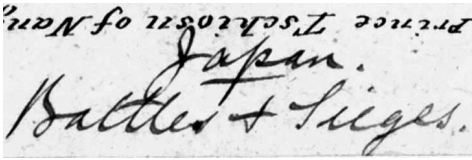 Prince Tschiosu of
Japan.
Battles + Sieges.